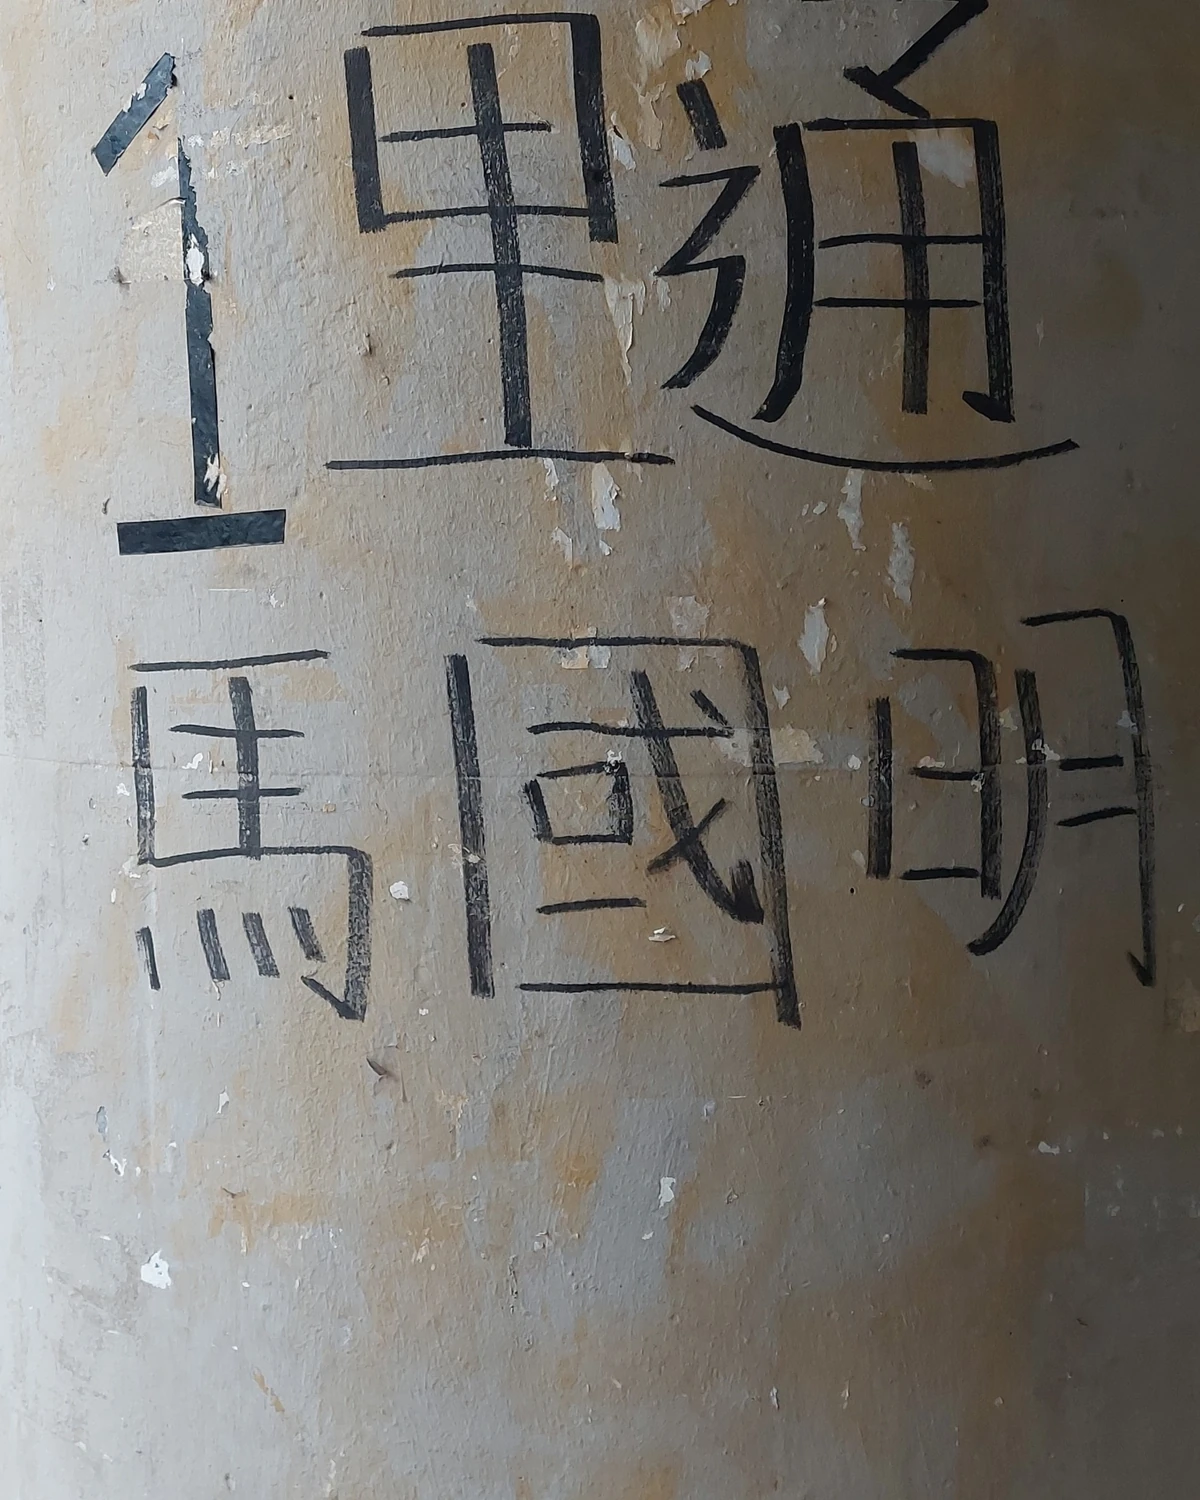 1里通
馬國明